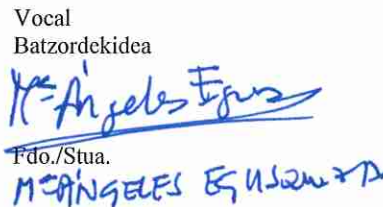 Vocal
Batzordekidea
Mª Ángeles Egus
Fdo./Stua.
Mª ÁNGELES